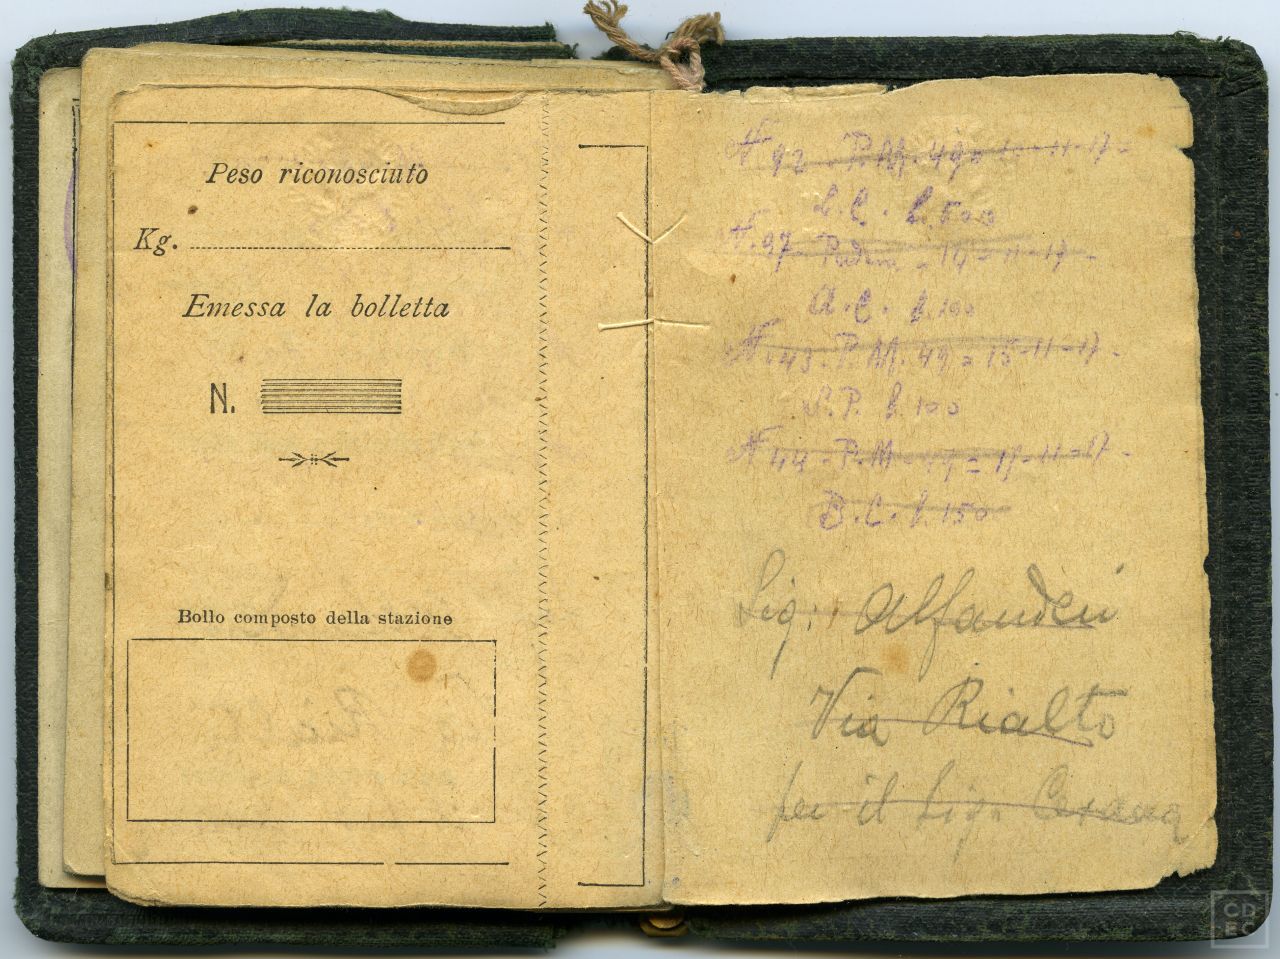 Peso riconosciuto
Kg.
Emessa la bolletta
N.
Bollo composto della stazione
N. 92 - P.M. 49 = 11-17-
L. 500
N. 97 - - 14-11-17-
A.C. L. 100
N. 43 - P.M. 49 = 15-11-17-
S.P. L. 100
N. 44 - P.M - 49 = 17-11-17-
B.C. L. 150
Sig. Alfanderi
Via Rialto
per il Sig.
CDEC